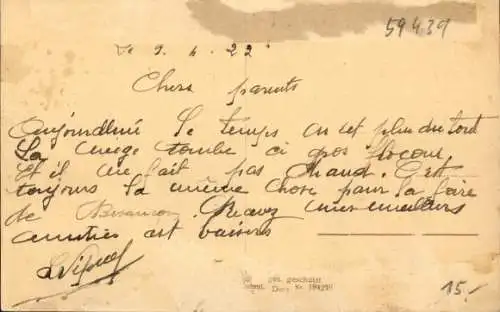 59439
Le 9. 4. 22
Chers parents
Aujourdhui Le temps du tout
La neige tombe ci gros flocons
Et il ne fait pas chaud. C'est
toujours la même chose pour la foire
de Besancon. Recevez mes meilleurs
amitiés est baisers
ges. geschützt
15.-